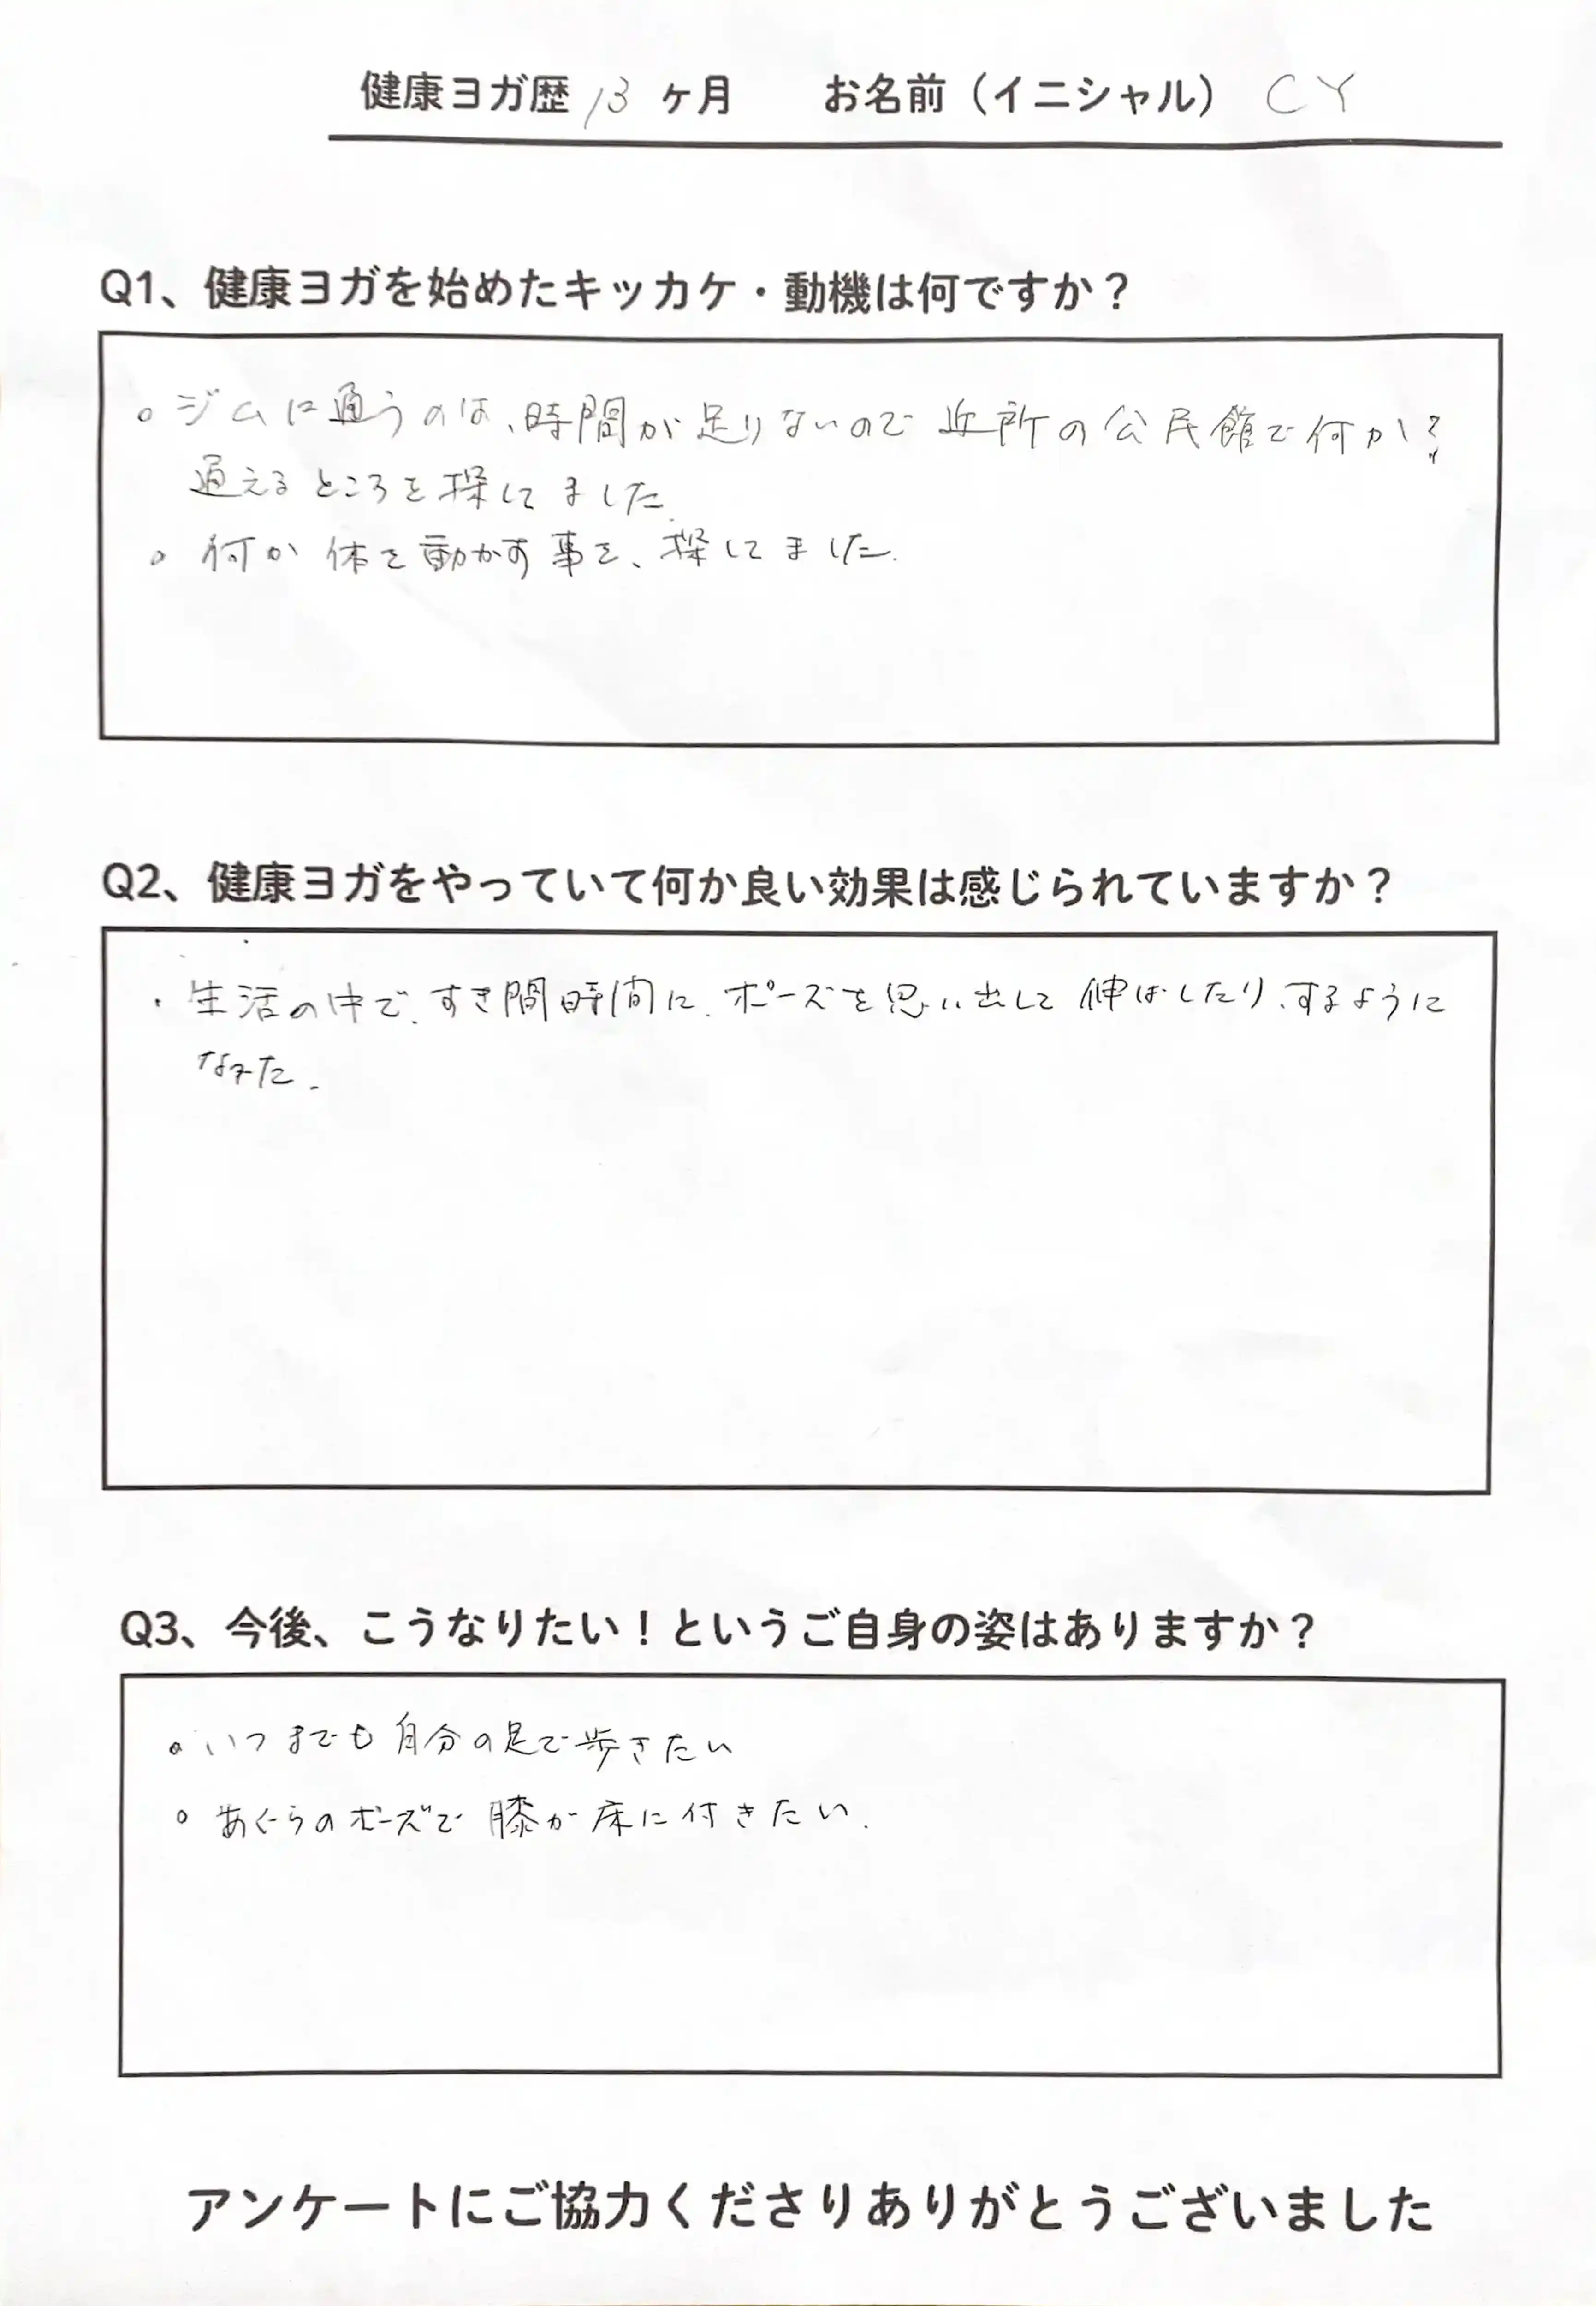 健康ヨガ歴 13 ヶ月 お名前（イニシャル） CY
Q1、健康ヨガを始めたキッカケ・動機は何ですか？
。ジムに通うのは、時間が足りないので 近所の公民館で何か？
通えるところを探してました.
。何か 体を動かす事を、探してました.
Q2、健康ヨガをやっていて何か良い効果は感じられていますか？
・生活の中で、すき間時間に、ポーズを思い出して 伸ばしたり、するように
なった.
Q3、今後、こうなりたい！というご自身の姿はありますか？
。いつまでも自分の足で歩きたい
。あぐらのポーズで 膝が床に付きたい.
アンケートにご協力くださりありがとうございました